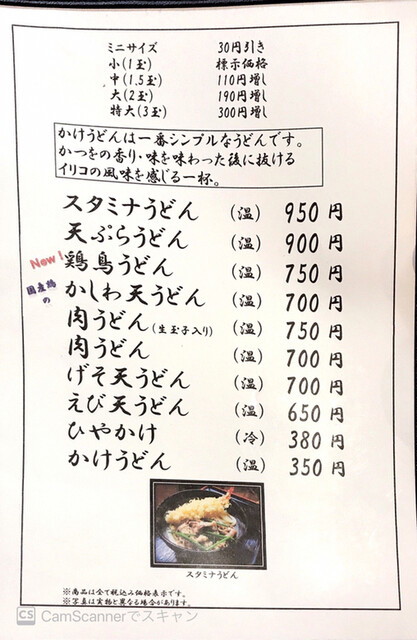 ミニサイズ 30円引き
小(1玉) 標示価格
中(1.5玉) 110円増し
大(2玉) 190円増し
特大(3玉) 300円増し
かけうどんは一番シンプルなうどんです。
かつをの香り・味を味わった後に抜ける
イリコの風味を感じる一杯。
スタミナうどん (温) 950円
天ぷらうどん (温) 900円
New! 鶏鳥うどん (温) 750円
国産鶏の かしわ天うどん (温) 700円
肉うどん(生玉子入り) (温) 750円
肉うどん (温) 700円
げそ天うどん (温) 700円
えび天うどん (温) 650円
ひやかけ (冷) 380円
かけうどん (温) 350円
スタミナうどん
※商品は全て税込み価格表示です。
※写真は実物と異なる場合があります。
CS CamScannerでスキャン